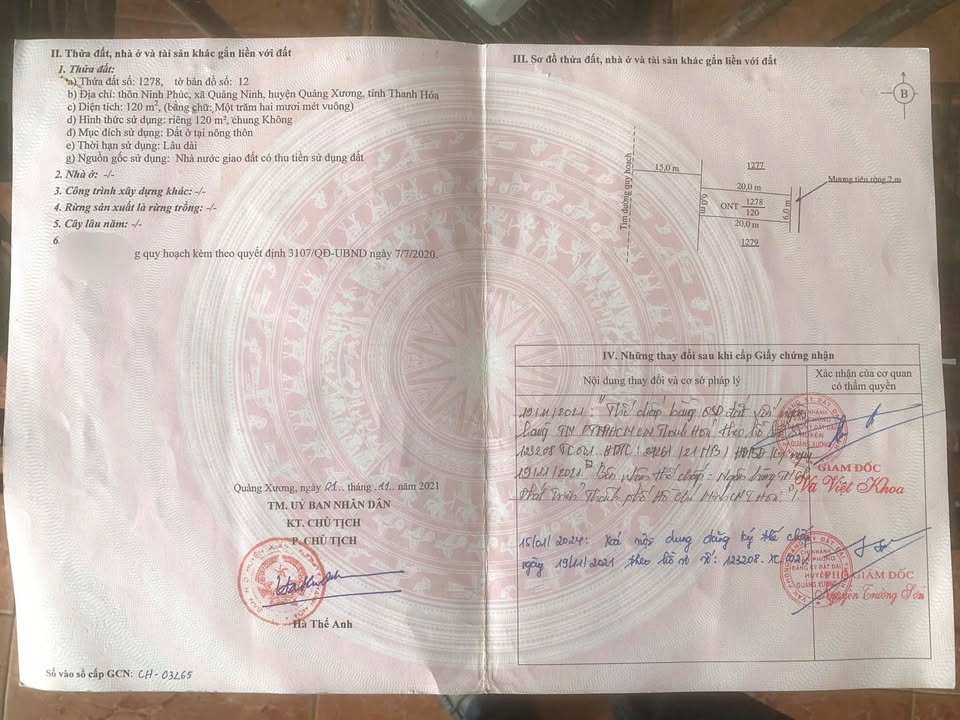 II. Thửa đất, nhà ở và tài sản khác gắn liền với đất
1. Thửa đất:
a) Thửa đất số: 1278, tờ bản đồ số: 12
b) Địa chỉ: thôn Ninh Phúc, xã Quảng Ninh, huyện Quảng Xương, tỉnh Thanh Hóa
c) Diện tích: 120 m², (bằng chữ: Một trăm hai mươi mét vuông)
d) Hình thức sử dụng: riêng 120 m², chung Không
đ) Mục đích sử dụng: Đất ở tại nông thôn
e) Thời hạn sử dụng: Lâu dài
g) Nguồn gốc sử dụng: Nhà nước giao đất có thu tiền sử dụng đất
2. Nhà ở: -/-
3. Công trình xây dựng khác: -/-
4. Rừng sản xuất là rừng trồng: -/-
5. Cây lâu năm: -/-
6.
g quy hoạch kèm theo quyết định 3107/QĐ-UBND ngày 7/7/2020.
Quảng Xương, ngày 01 tháng 11 năm 2021
TM. UỶ BAN NHÂN DÂN
KT. CHỦ TỊCH
P. CHỦ TỊCH
Hà Thế Anh
Số vào sổ cấp GCN: CH-03265
III. Sơ đồ thửa đất, nhà ở và tài sản khác gắn liền với đất
B
Tim đường quy hoạch
15,0 m
1277
20,0 m
Mương tiêu rộng 2 m
6,0 m
ONT 1278
120
6,0 m
20,0 m
1279
IV. Những thay đổi sau khi cấp Giấy chứng nhận
Nội dung thay đổi và cơ sở pháp lý
Xác nhận của cơ quan có thẩm quyền
19/11/2021: Thế chấp bằng QSD đất với ngân
hàng TM theo hồ
123208.TC.021. HĐTC ngày
19/11/2021. Bên nhận thế chấp: Ngân hàng
Phát Triển Thành phố Hồ Chí Minh
GIÁM ĐỐC
Vũ Việt Khoa
15/01/2024: Xoá nội dung đăng ký thế chấp
ngày 19/11/2021 theo hồ sơ số: 123208.
PHÓ GIÁM ĐỐC
Nguyễn Trường Sơn